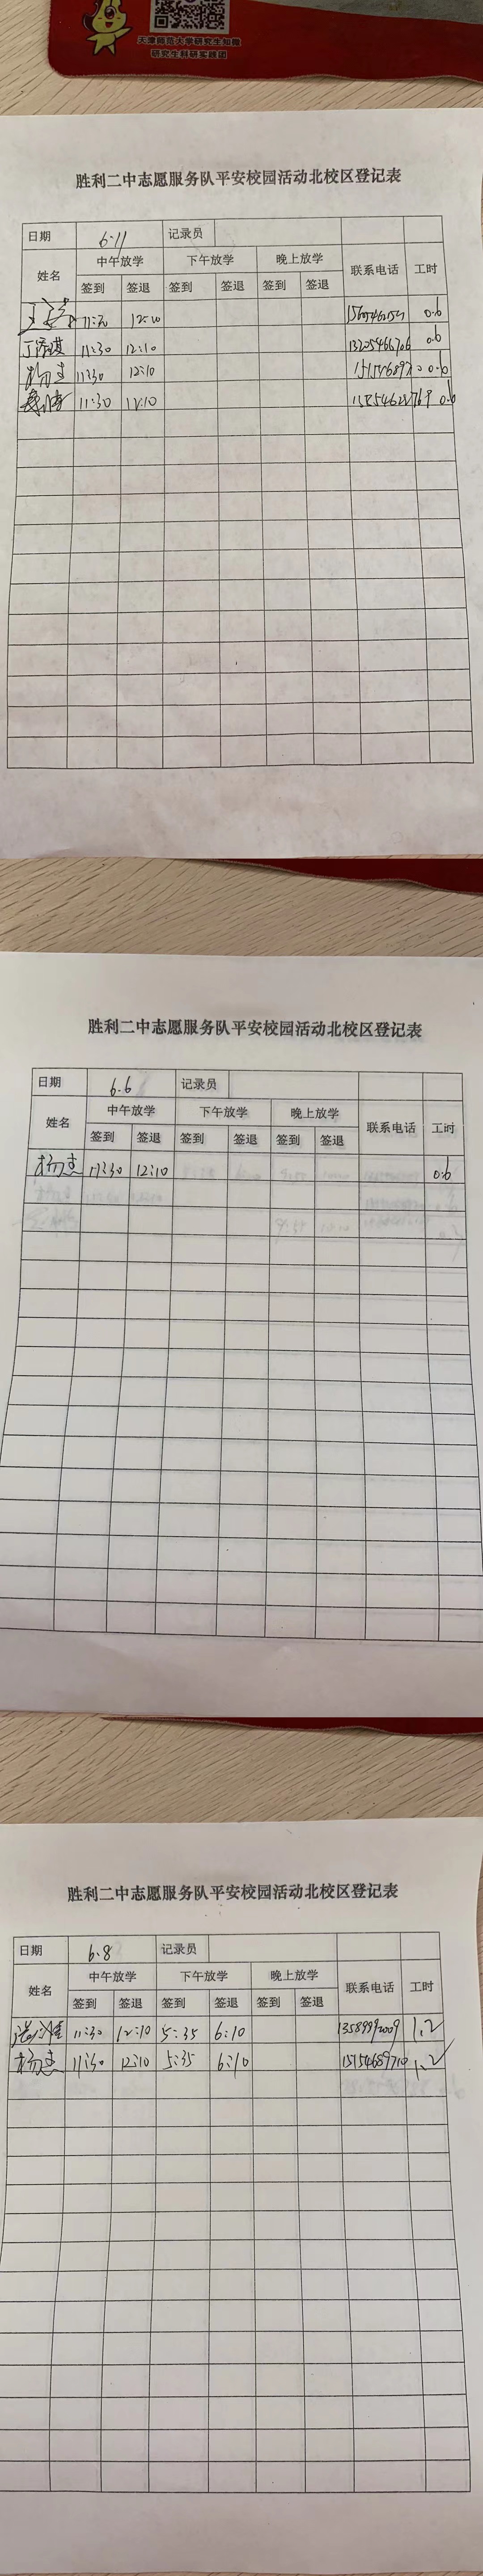 天津师范大学研究生知微
研究生科研实践团
胜利二中志愿服务队平安校园活动北校区登记表
日期 6.11 记录员
姓名 中午放学 下午放学 晚上放学 联系电话 工时
签到 签退 签到 签退 签到 签退
0.6
11:30 12:10 0.6
杨 11:30 12:10 0.6
11:30 12:10 0.6
胜利二中志愿服务队平安校园活动北校区登记表
日期 6.6 记录员
姓名 中午放学 下午放学 晚上放学 联系电话 工时
签到 签退 签到 签退 签到 签退
杨 11:30 12:10 0.6
胜利二中志愿服务队平安校园活动北校区登记表
日期 6.8 记录员
姓名 中午放学 下午放学 晚上放学 联系电话 工时
签到 签退 签到 签退 签到 签退
11:30 12:10 5:35 6:10 1.2
杨 11:30 12:10 5:35 6:10 15154689710 1.2